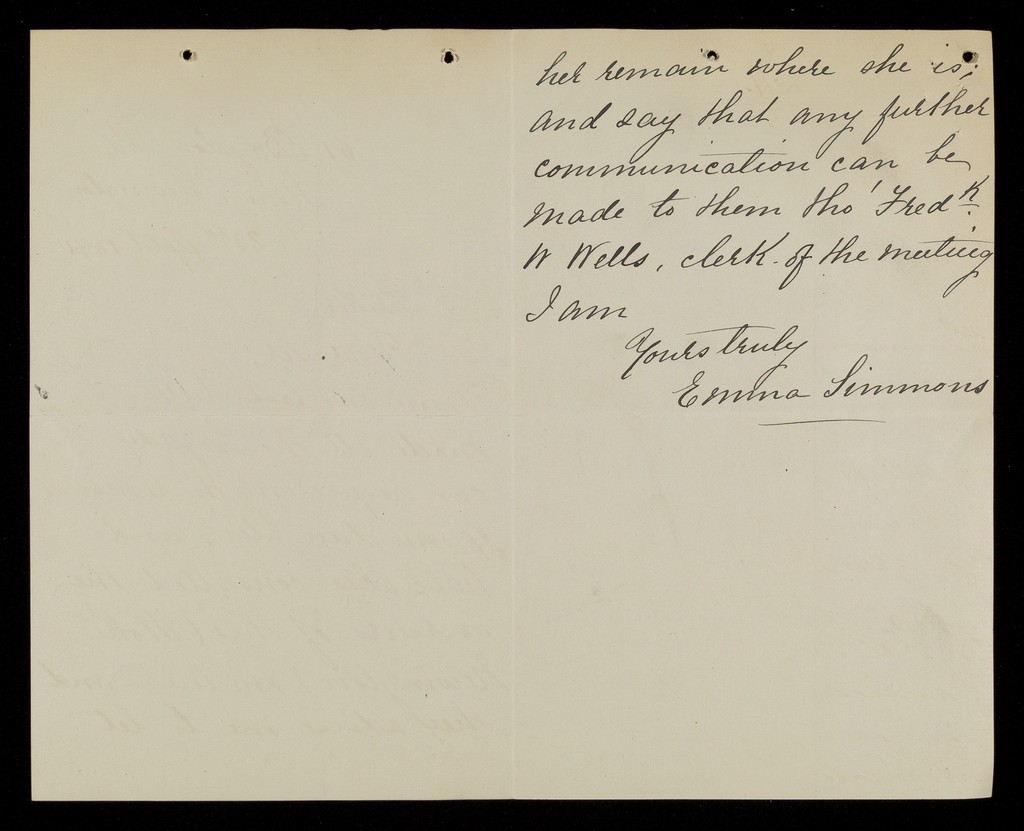 her remain where she is;
and say that any further
communication can be
made to them tho' Fredk.
W Wells, clerk of the meeting
I am
Yours truly
Emma Simmons